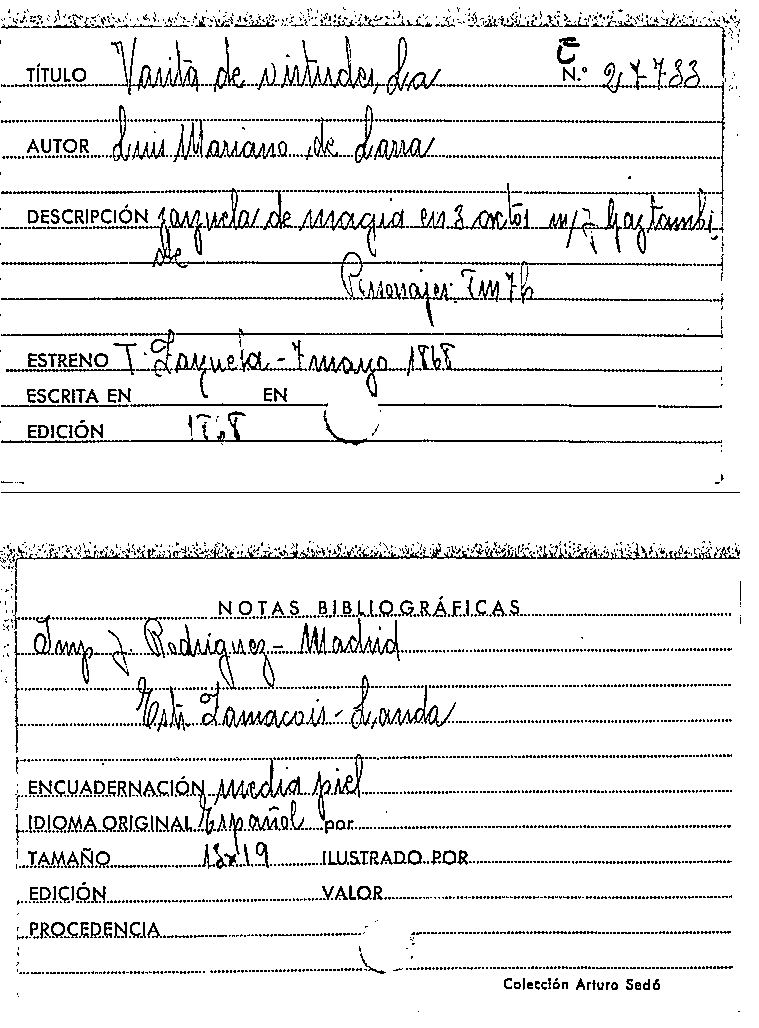 C̅
TÍTULO Varita de virtudes, La N.º 27733
AUTOR Luis Mariano de Larra
DESCRIPCIÓN zarzuela de magia en 3 actos m/ J. Gaztambi
de
Personajes: 7m 7h
ESTRENO T. Zarzuela - 7 mayo 1868
ESCRITA EN EN
EDICIÓN 1868
NOTAS BIBLIOGRÁFICAS
Imp J. Rodriguez - Madrid
Estr Zamacois - Landa
ENCUADERNACIÓN media piel
IDIOMA ORIGINAL Español por
TAMAÑO 13x19 ILUSTRADO POR
EDICIÓN VALOR
PROCEDENCIA
Colección Arturo Sedó